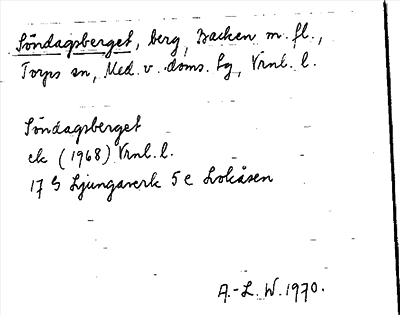 Söndagsberget, berg, Backen m. fl.,
Torps sn, Med. v. doms. tg, Vrnl. l.
Söndagsberget
ek (1968) Vrnl. l.
17 G Ljungaverk 5 e Lokåsen
A.-L. W. 1970.